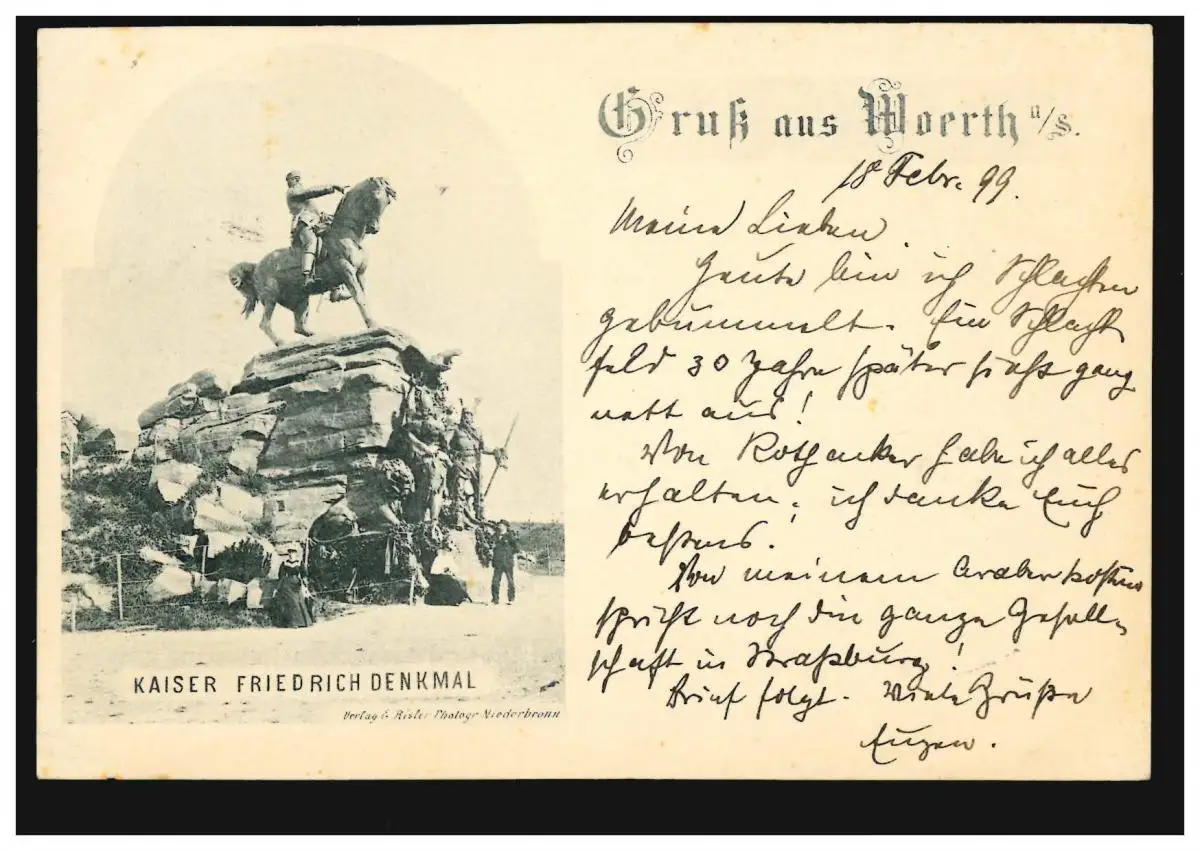 Gruß aus Woerth a/S.
18 Febr. 99.
Meine Lieben.
Heute bin ich Schlachten
gebummelt. Ein Schlacht
feld 30 Jahre später sieht ganz
nett aus!
Von Rothacker habe ich alles
erhalten, ich danke Euch
bestens.
Von meinem Araberkostüm
spricht noch die ganze Gesell-
schaft in Straßburg!
Brief folgt. Viele Grüße
Eugen.
KAISER FRIEDRICH DENKMAL
Verlag C. Risler Photogr. Niederbronn